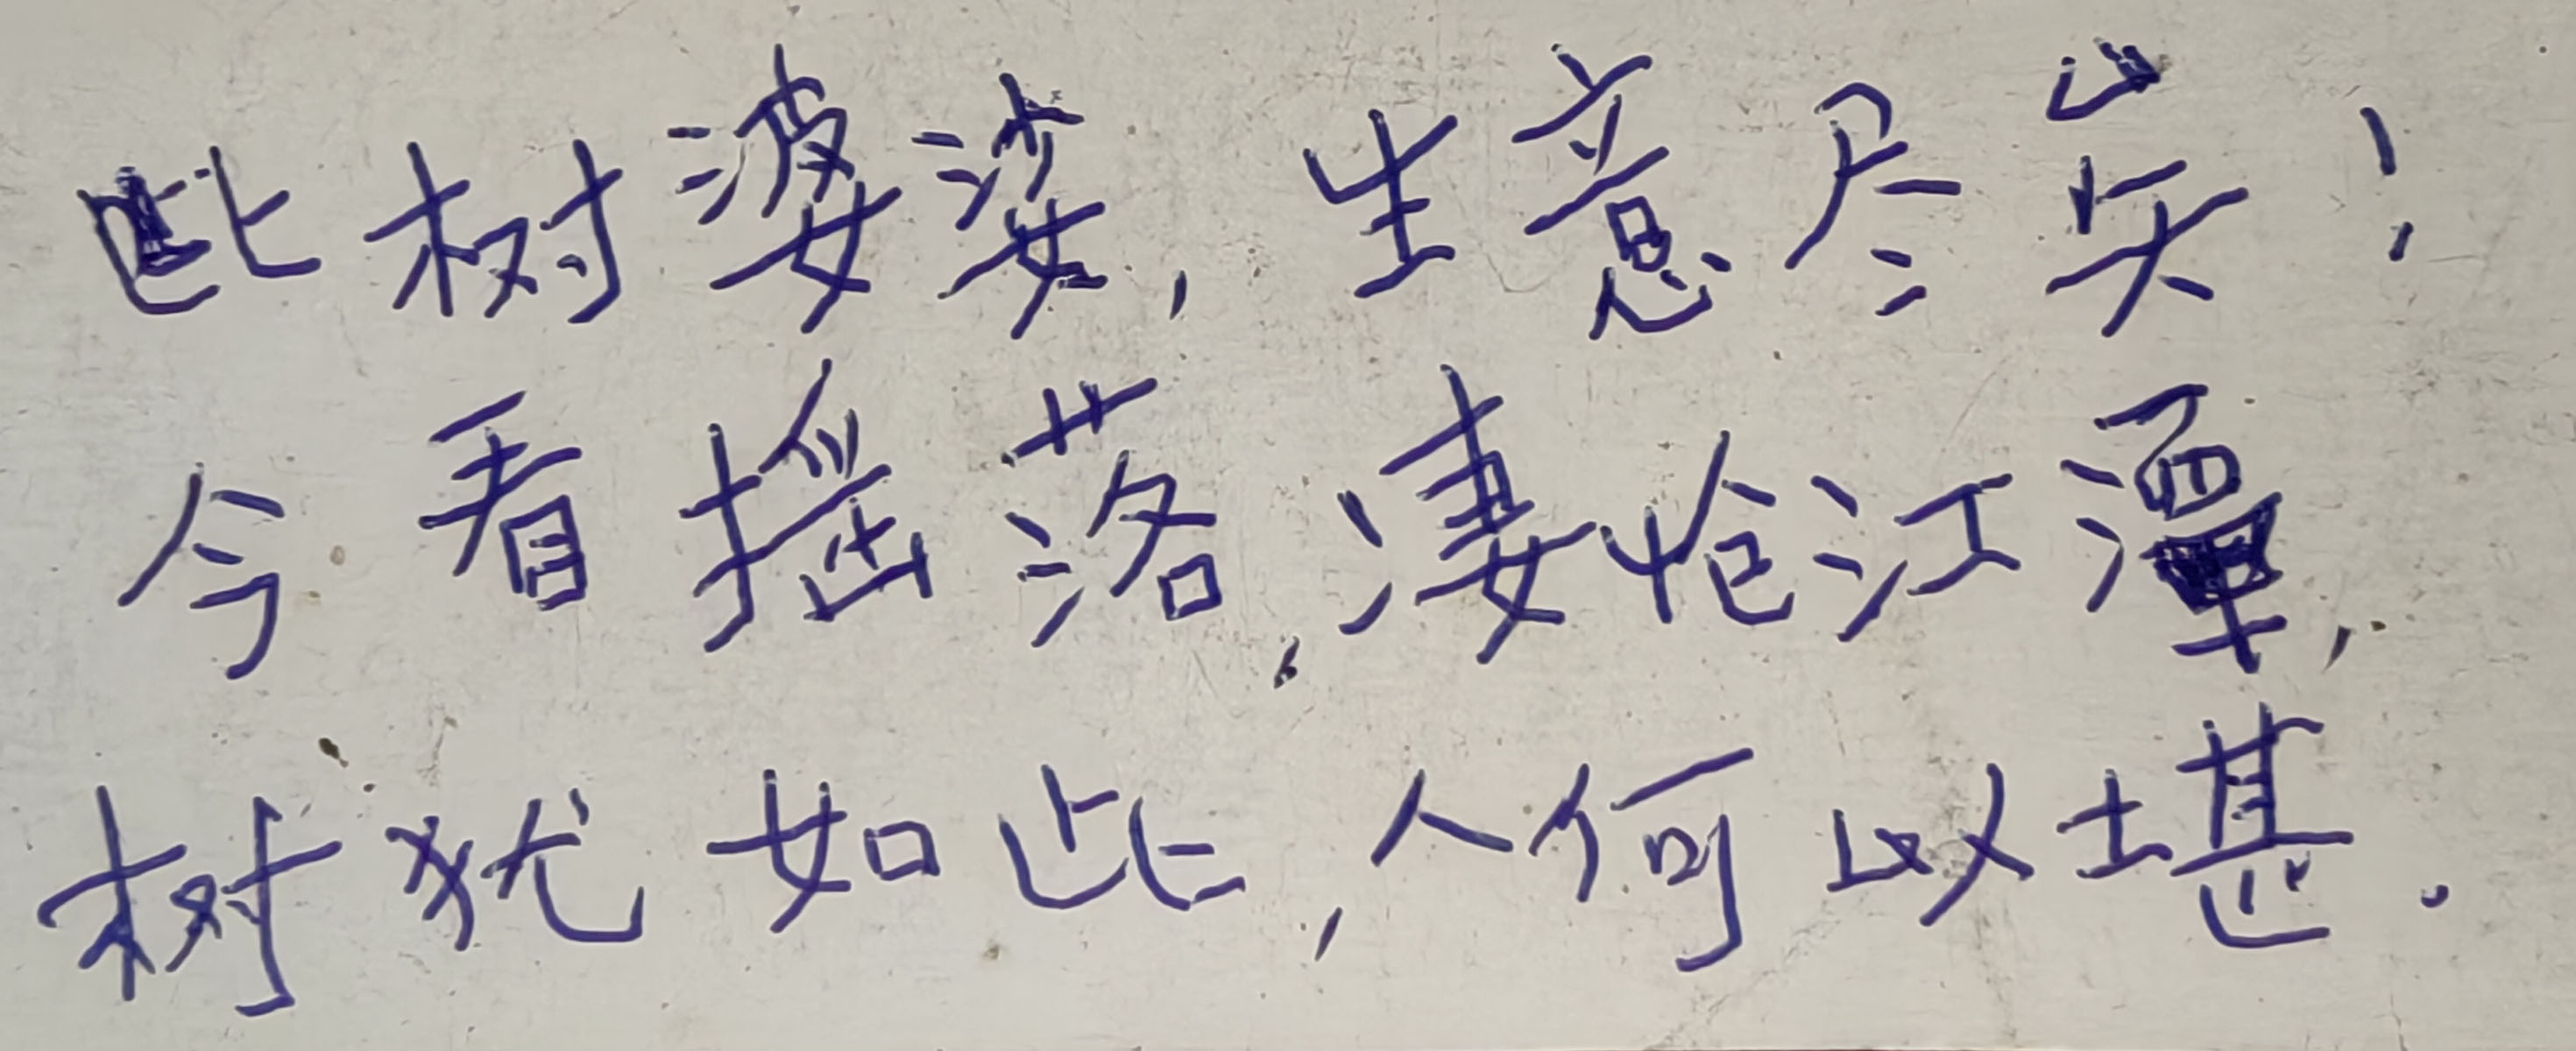 此树婆娑，生意尽矣！
今看摇落，凄怆江潭，
树犹如此，人何以堪。